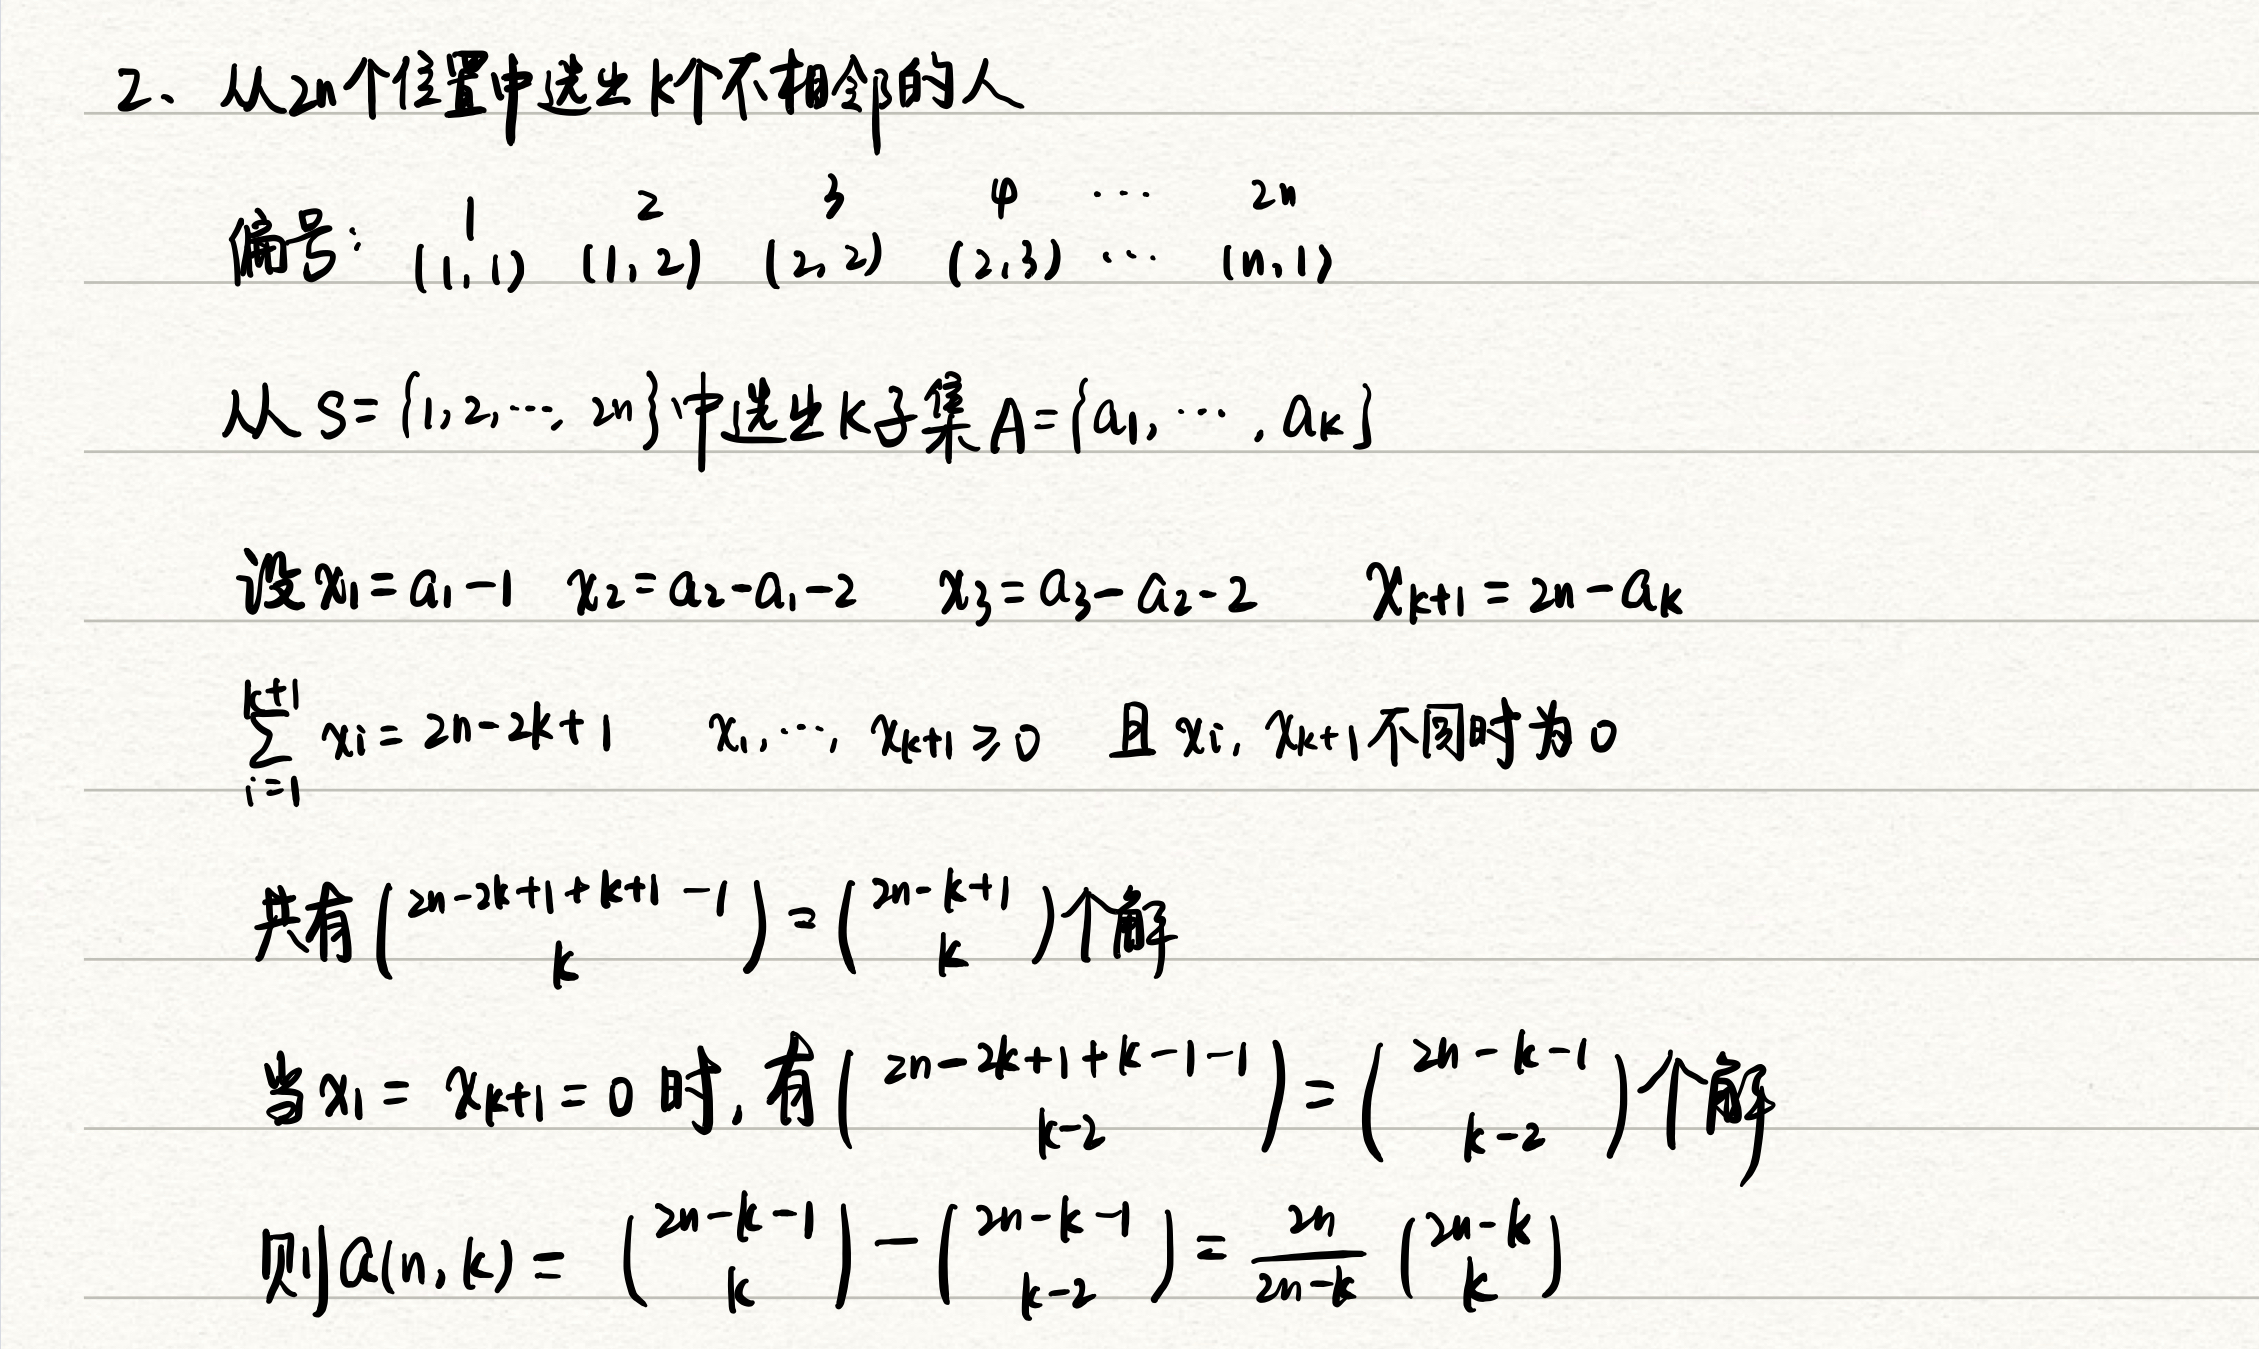 2、从2n个位置中选出k个不相邻的人
1 2 3 4 ... 2n
偏号: (1,1) (1,2) (2,2) (2,3) ... (n,1)
从 S={1,2,...,2n}中选出k子集A={a₁,...,aₖ}
设x₁=a₁-1 x₂=a₂-a₁-2 x₃=a₃-a₂-2 xₖ₊₁=2n-aₖ
∑_{i=1}^{k+1} xᵢ=2n-2k+1 x₁,...,xₖ₊₁≥0 且 xᵢ,xₖ₊₁不同时为0
共有\binom{2n-2k+1+k+1-1}{k}=\binom{2n-k+1}{k}个解
当x₁=xₖ₊₁=0时,有\binom{2n-2k+1+k-1-1}{k-2}=\binom{2n-k-1}{k-2}个解
则a(n,k)=\binom{2n-k-1}{k}-\binom{2n-k-1}{k-2}=\frac{2n}{2n-k}\binom{2n-k}{k}